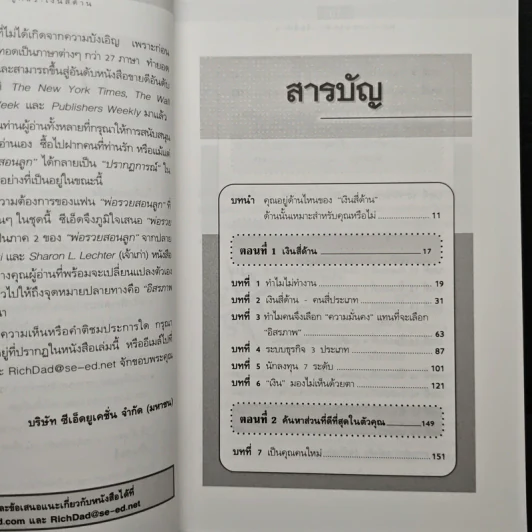 ที่ไม่ได้เกิดจากความบังเอิญ เพราะก่อน
ทอดเป็นภาษาต่างๆ กว่า 27 ภาษา ทำยอด
และสามารถขึ้นสู่อันดับหนังสือขายดีอันดับ
The New York Times, The Wall
Week และ Publishers Weekly มาแล้ว
นท่านผู้อ่านทั้งหลายที่กรุณาให้การสนับสนุน
อ่านเอง ซื้อไปฝากคนที่ท่านรัก หรือแม้แต่
สอนลูก" ได้กลายเป็น "ปรากฏการณ์" ใน
อย่างที่เป็นอยู่ในขณะนี้
ความต้องการของแฟน "พ่อรวยสอนลูก" ที่
นๆ ในชุดนี้ ซีเอ็ดจึงภูมิใจเสนอ "พ่อรวย
เป็นภาค 2 ของ "พ่อรวยสอนลูก" จากปลาย
i และ Sharon L. Lechter (เจ้าเก่า) หนังสือ
างคุณผู้อ่านที่พร้อมจะเปลี่ยนแปลงตัวเอง
ไปให้ถึงจุดหมายปลายทางคือ "อิสรภาพ
นา
ความเห็นหรือคำติชมประการใด กรุณา
อยู่ที่ปรากฏในหนังสือเล่มนี้ หรืออีเมล์ไปที่
ะ RichDad@se-ed.net จักขอบพระคุณ
บริษัท ซีเอ็ดยูเคชั่น จำกัด (มหาชน)
ละข้อเสนอแนะเกี่ยวกับหนังสือได้ที่
d.com และ RichDad@se-ed.net
สารบัญ
บทนำ คุณอยู่ด้านไหนของ "เงินสี่ด้าน"
ด้านนั้นเหมาะสำหรับคุณหรือไม่ 11
ตอนที่ 1 เงินสี่ด้าน 17
บทที่ 1 ทำไมไม่ทำงาน 19
บทที่ 2 เงินสี่ด้าน - คนสี่ประเภท 31
บทที่ 3 ทำไมคนจึงเลือก "ความมั่นคง" แทนที่จะเลือก
"อิสรภาพ" 63
บทที่ 4 ระบบธุรกิจ 3 ประเภท 87
บทที่ 5 นักลงทุน 7 ระดับ 101
บทที่ 6 "เงิน" มองไม่เห็นด้วยตา 121
ตอนที่ 2 ค้นหาส่วนที่ดีที่สุดในตัวคุณ 149
บทที่ 7 เป็นคุณคนใหม่ 151